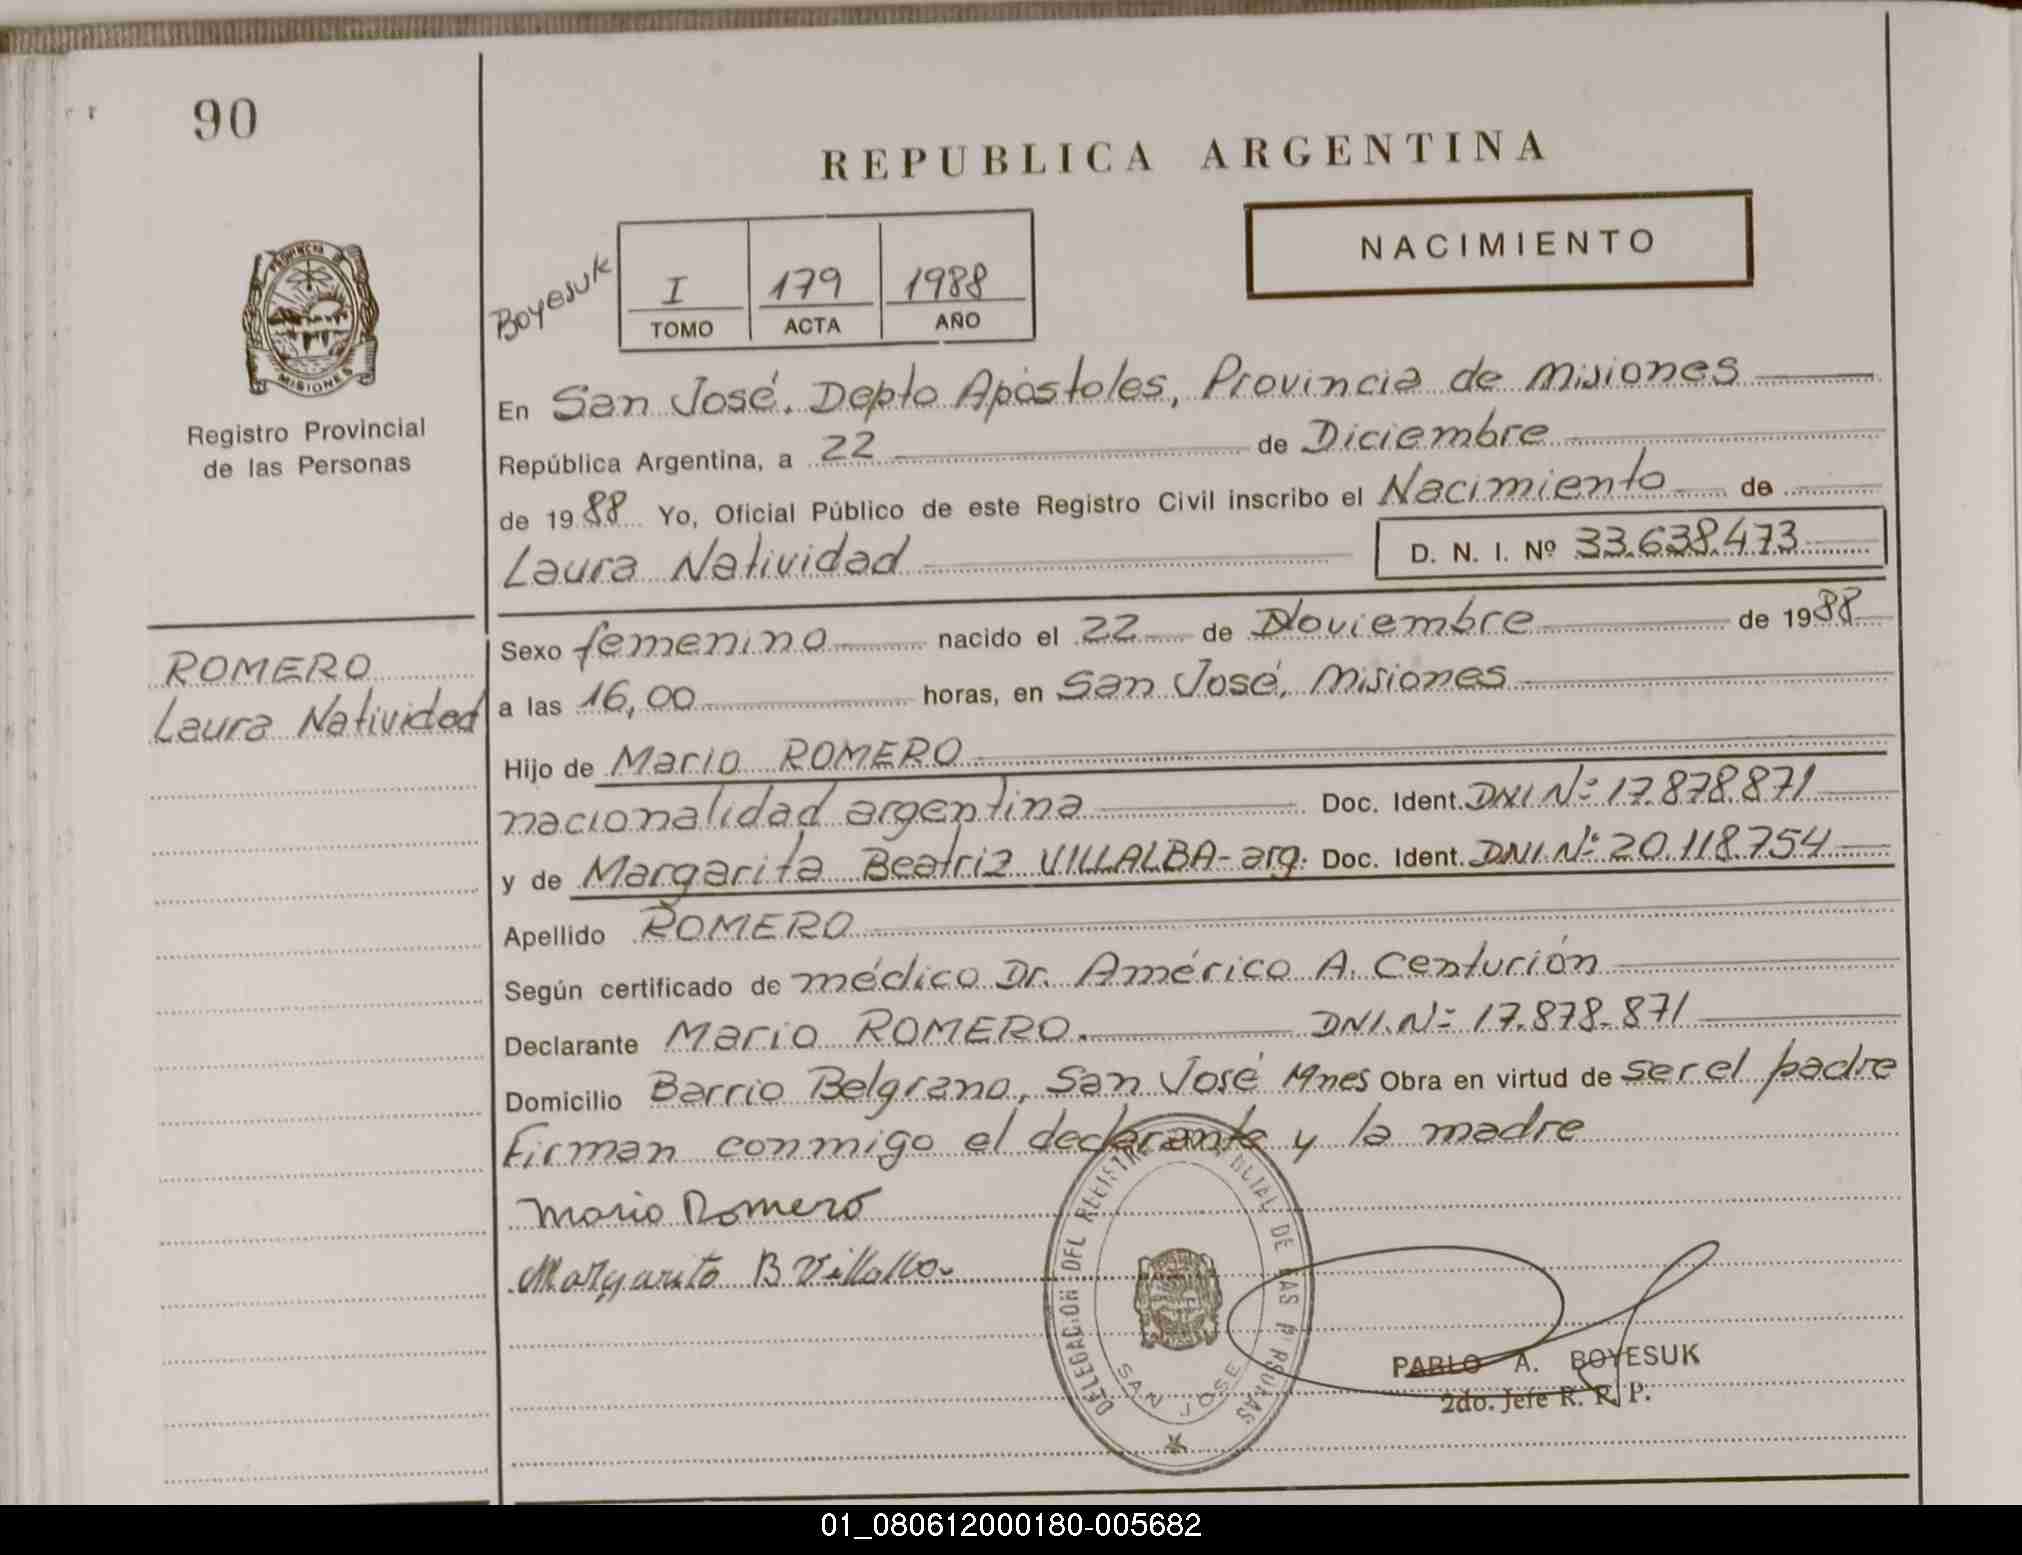 90
REPUBLICA ARGENTINA
NACIMIENTO
Boyesuk
I 179 1988
TOMO ACTA AÑO
PROVINCIA DE MISIONES
Registro Provincial
de las Personas
En San José. Depto Apóstoles, Provincia de Misiones
República Argentina, a 22 de Diciembre
de 1988 Yo, Oficial Público de este Registro Civil inscribo el Nacimiento de
Laura Natividad D. N. I. Nº 33.638.473
ROMERO
Laura Natividad
Sexo femenino nacido el 22 de Noviembre de 1988
a las 16,00 horas, en San José, Misiones
Hijo de Mario ROMERO
nacionalidad argentina Doc. Ident. DNI Nº 17.878.871
y de Margarita Beatriz VILLALBA-arg. Doc. Ident. DNI.Nº 20.118.754
Apellido ROMERO
Según certificado de médico Dr. Américo A. Centurión
Declarante Mario ROMERO. DNI.Nº 17.878.871
Domicilio Barrio Belgrano, San José Mnes Obra en virtud de ser el padre
Firman conmigo el declarante y la madre
Mario Romero
Margarita B Villalba
DELEGACION DEL REGISTRO PROVINCIAL DE LAS PERSONAS
SAN JOSE
PABLO A. BOYESUK
2do. Jefe R. R. P.
01_080612000180-005682